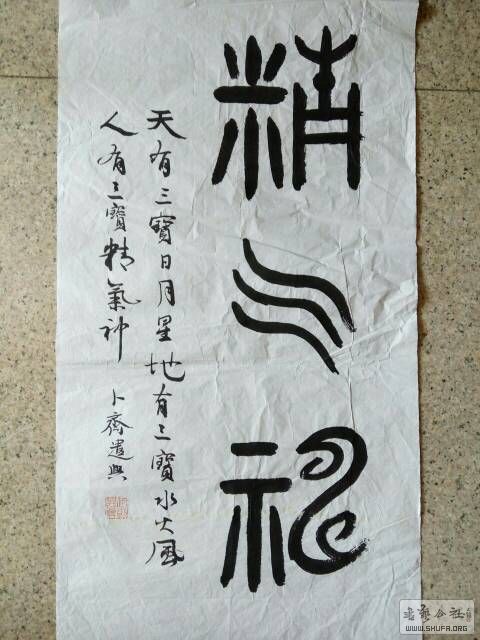 精气神
天有三寶日月星地有三寶水火風
人有三寶精氣神 卜齋遣興
書藝公社
WWW.SHUFA.ORG